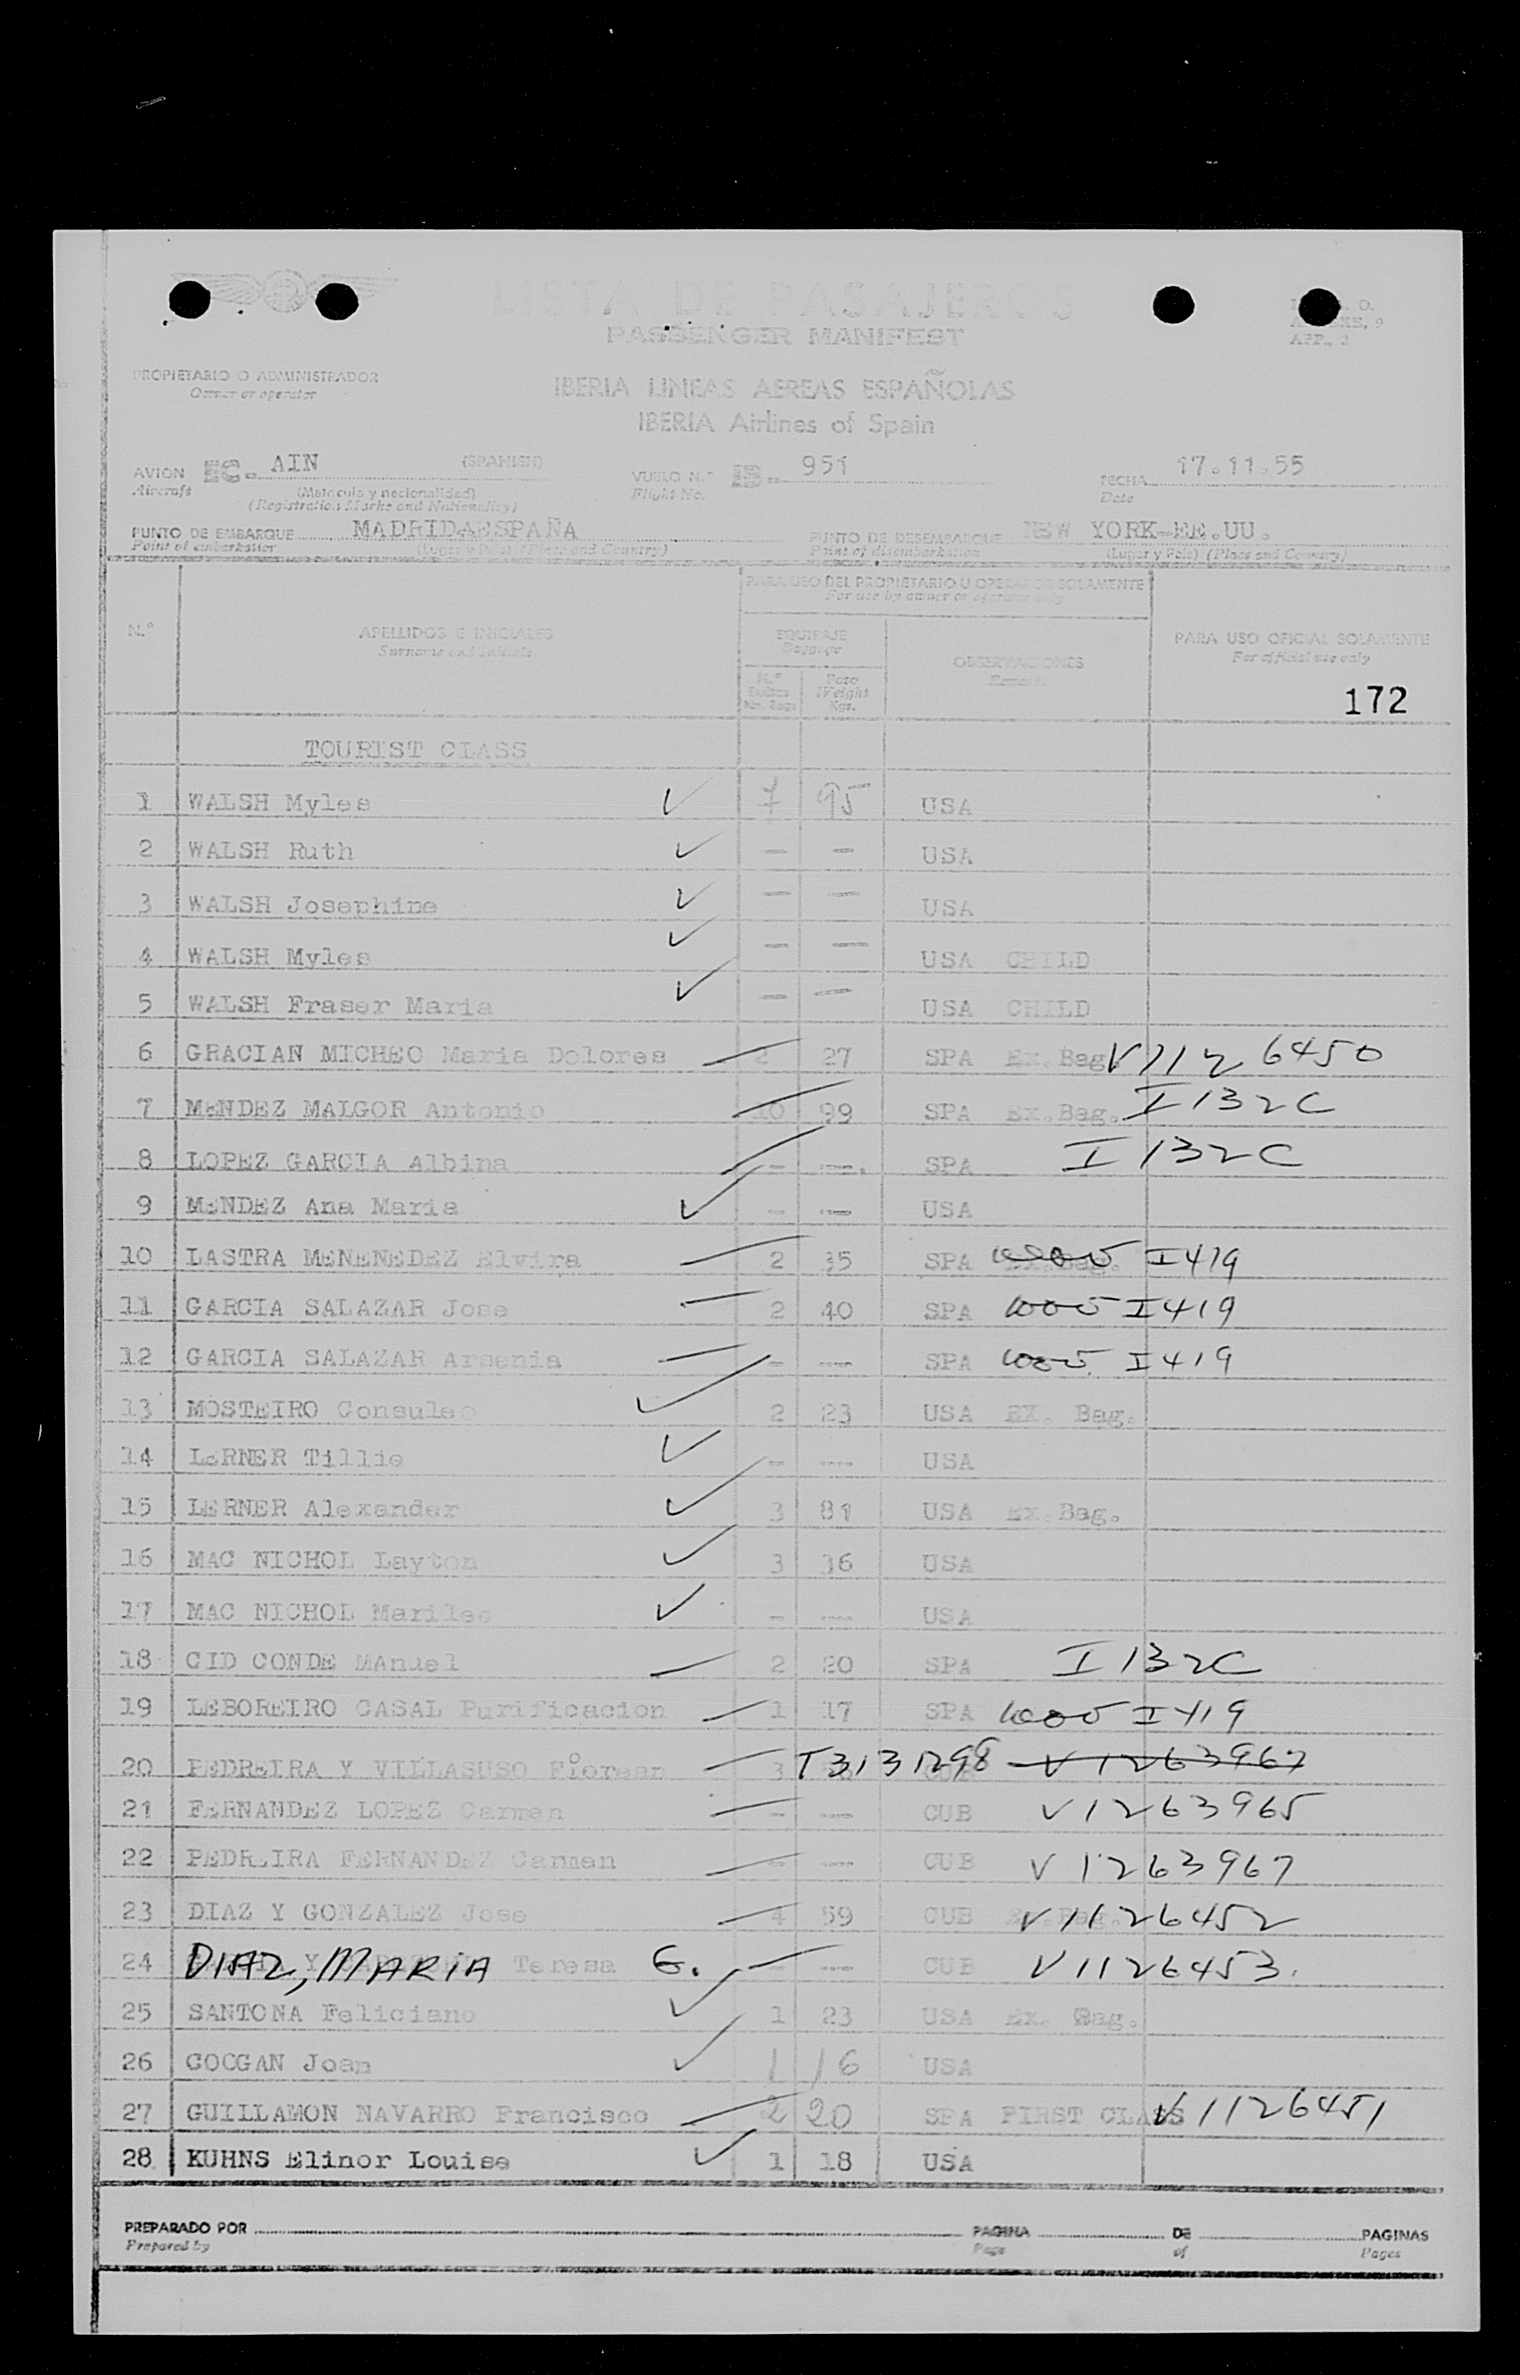 LISTA DE PASAJEROS
PASSENGER MANIFEST
PROPIETARIO O ADMINISTRADOR
Owner or operator
IBERIA LINEAS AEREAS ESPAÑOLAS
IBERIA Airlines of Spain
AVION EC. AIN (SPANISH)
Aircraft (Matrícula y nacionalidad)
(Registration Marks and Nationality)
VUELO N.° IB. 951
Flight No.
FECHA 17.11.55
Date
PUNTO DE EMBARQUE MADRID-ESPAÑA
Point of embarkation (Lugar y País) (Place and Country)
PUNTO DE DESEMBARQUE NEW YORK-EE.UU.
Point of disembarkation (Lugar y País) (Place and Country)
PARA USO DEL PROPIETARIO U OPERADOR SOLAMENTE
For use by owner or operator only
N.° APELLIDOS E INICIALES
Surname and initials
EQUIPAJE
Baggage
N.° Bultos No. Bags
Peso Weight Kgs.
OBSERVACIONES
Remarks
PARA USO OFICIAL SOLAMENTE
For official use only
172
TOURIST CLASS
1 WALSH Myles ✓ 7 95 USA
2 WALSH Ruth ✓ — — USA
3 WALSH Josephine ✓ — — USA
4 WALSH Myles ✓ — — USA CHILD
5 WALSH Fraser Maria ✓ — — USA CHILD
6 GRACIAN MICHEO Maria Dolores 2 27 SPA Ex.Bag. V1126450
7 MENDEZ MALGOR Antonio 10 99 SPA Ex.Bag. I 132C
8 LOPEZ GARCIA Albina — — SPA I 132C
9 MENDEZ Ana Maria ✓ — — USA
10 LASTRA MENENEDEZ Elvira 2 35 SPA Ex.Bag. I419
11 GARCIA SALAZAR Jose 2 40 SPA I419
12 GARCIA SALAZAR Arsenia — — SPA I419
13 MOSTEIRO Consuleo ✓ 2 23 USA EX. Bag.
14 LERNER Tillie ✓ — — USA
15 LERNER Alexander ✓ 3 81 USA Ex.Bag.
16 MAC NICHOL Layton ✓ 3 36 USA
17 MAC NICHOL Marilee ✓ — — USA
18 CID CONDE MAnuel 2 20 SPA I 132C
19 LEBOREIRO CASAL Purificacion 1 17 SPA I419
20 PEDREIRA Y VILLASUSO Florean 3 T3131298 V1263967
21 FERNANDEZ LOPEZ Carmen — — CUB V1263965
22 PEDREIRA FERNANDEZ Carmen — — CUB V1263967
23 DIAZ Y GONZALEZ Jose 4 59 CUB Ex.Bag. V1126452
24 DIAZ, MARIA Teresa G. — — CUB V1126453.
25 SANTONA Feliciano ✓ 1 23 USA Ex. Bag.
26 COOGAN Joan ✓ 1 16 USA
27 GUILLAMON NAVARRO Francisco 2 20 SPA FIRST CLASS V1126451
28 KUHNS Elinor Louise ✓ 1 18 USA
PREPARADO POR PAGINA DE PAGINAS
Prepared by Page of Pages